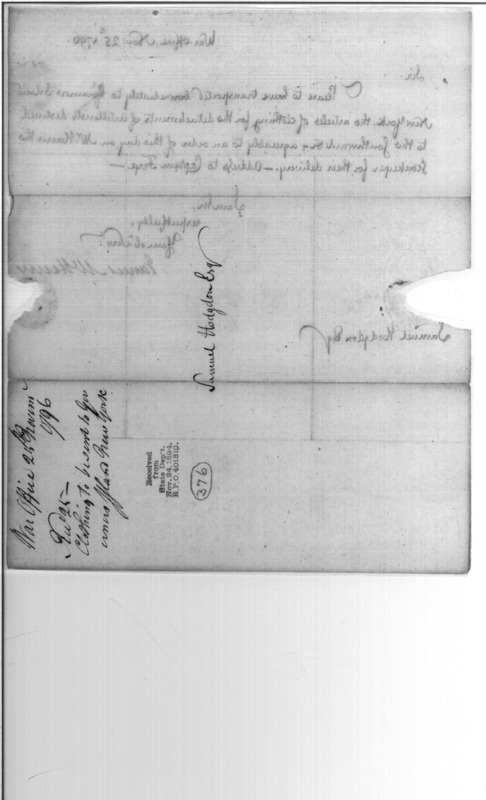 War Office Nov: 25th 1796.
Sir
Please to have transported immediately to Governors Island
New York the articles of clothing for the detachments of Artillerists destined
to the Southward & agreeably to an order of this day on Mr Harris the
Storekeeper for their delivery.
I am Sir,
respectfully,
James McHenry
Samuel Hodgdon Esqr
Samuel Hodgdon Esqr
War Office 25th
1796
Clothing to be sent to Gov
ernors Island New York
Received
from
State Dep't.
Nov. 24, 1894.
R.P.O. 401810.
376